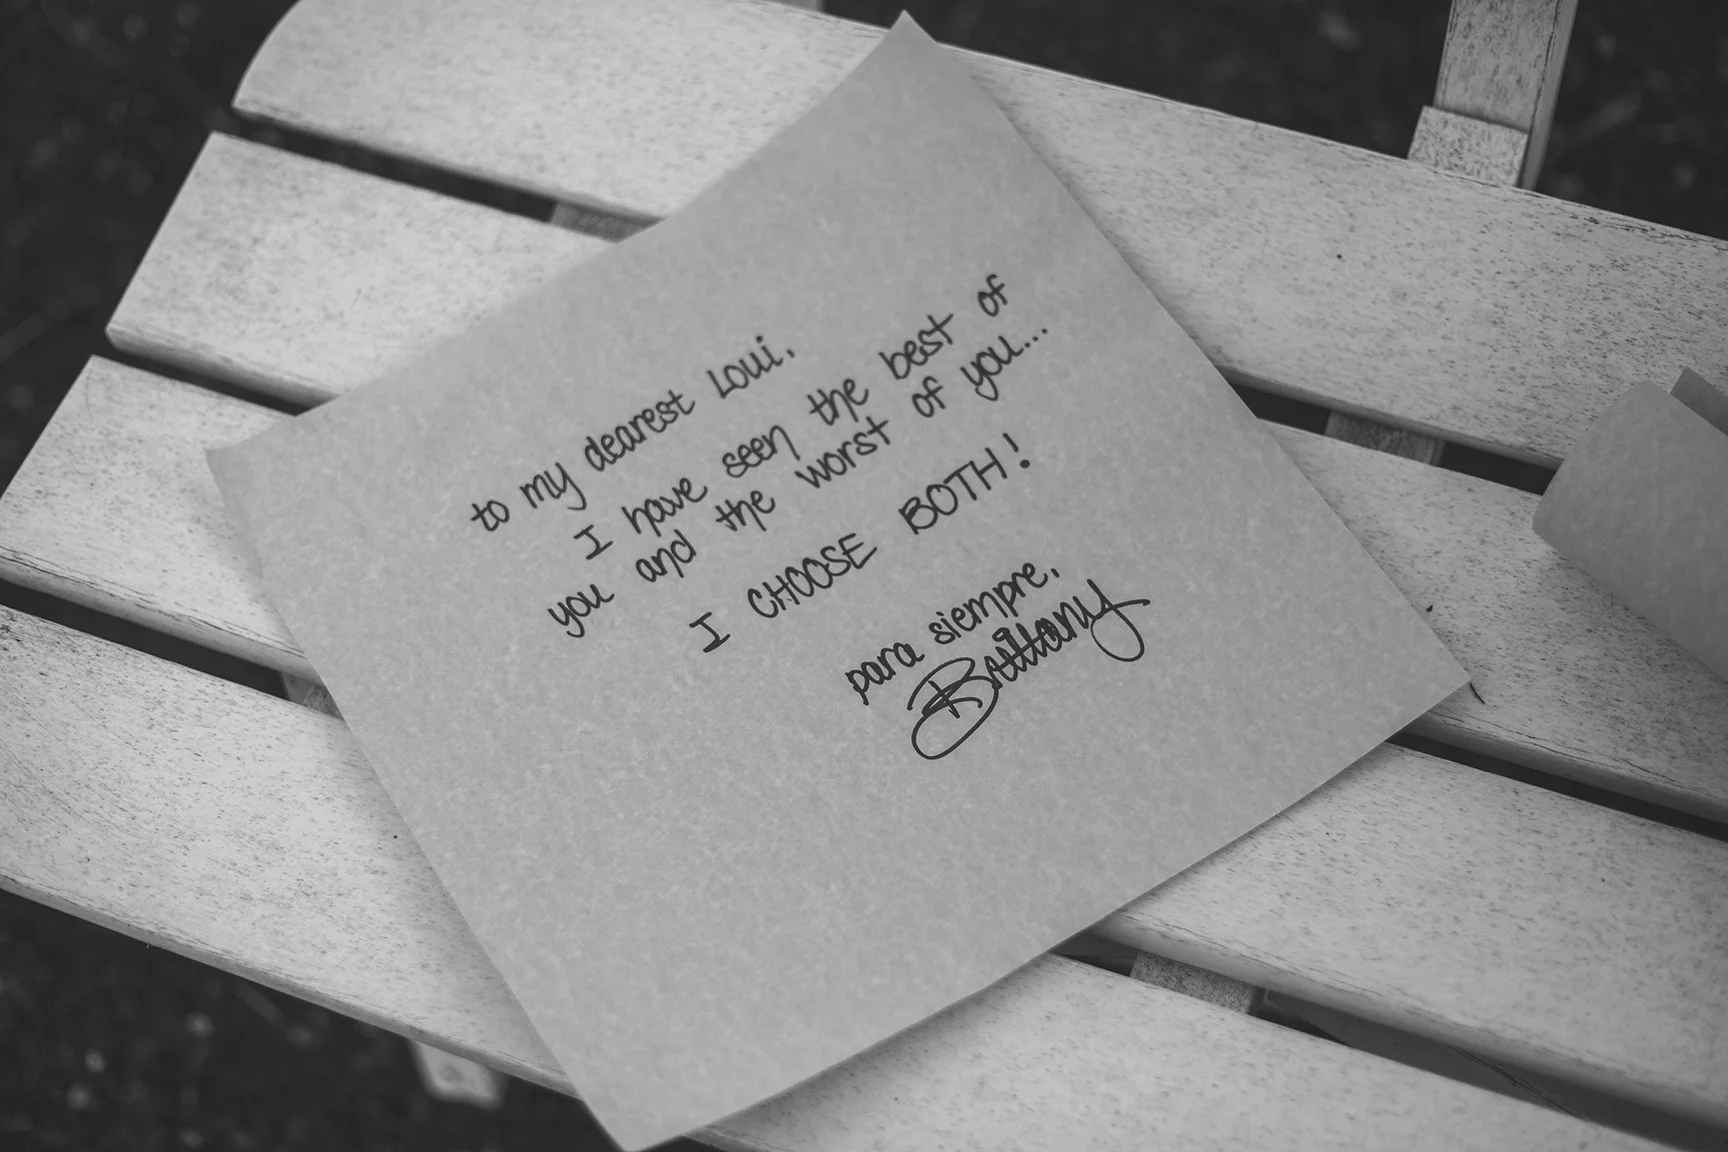 to my dearest Loui,
I have seen the best of
you and the worst of you...
I CHOOSE BOTH!
para siempre,
Brittany